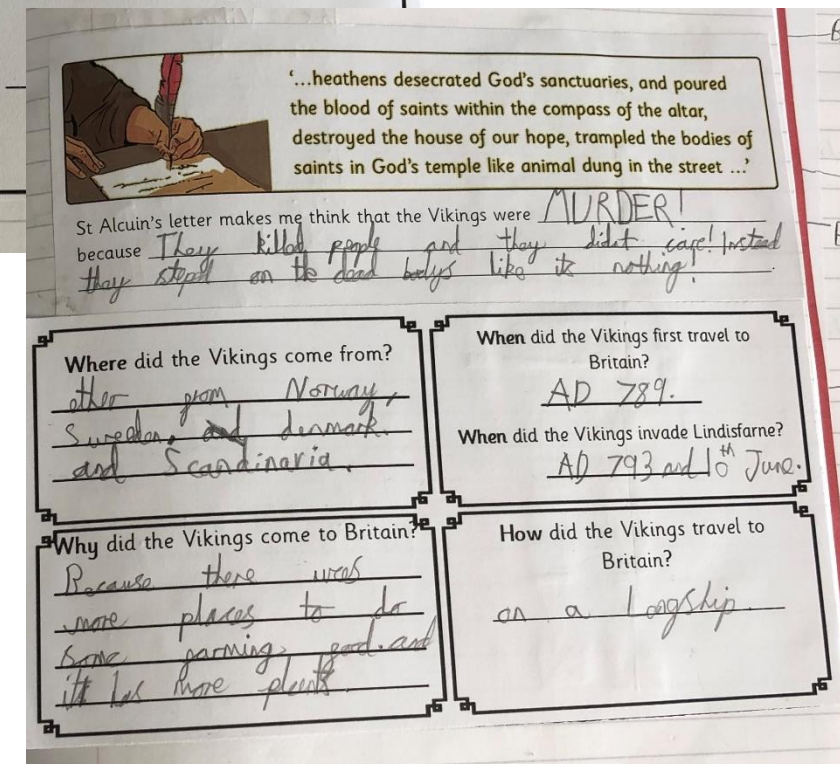 ‘...heathens desecrated God’s sanctuaries, and poured
the blood of saints within the compass of the altar,
destroyed the house of our hope, trampled the bodies of
saints in God’s temple like animal dung in the street ...’
St Alcuin’s letter makes me think that the Vikings were MURDER!
because They killed people and they didt care! Instead
they stepd on the dead bodys like its nothing!
Where did the Vikings come from?
other from Norway,
Sweden, and denmark.
and Scandinavia.
When did the Vikings first travel to
Britain?
AD 789.
When did the Vikings invade Lindisfarne?
AD 793 and 10th June.
Why did the Vikings come to Britain?
Because there was
more places to do
Some farming, and
itt has more
How did the Vikings travel to
Britain?
on a Longship